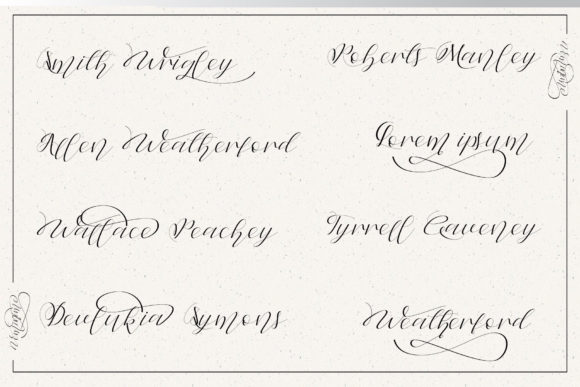 Smith Wrigley
Allen Weatherford
Wallace Peachey
Dewtukia Symons
Roberts Manley
Lorem ipsum
Tyrrell Caveney
Weatherford